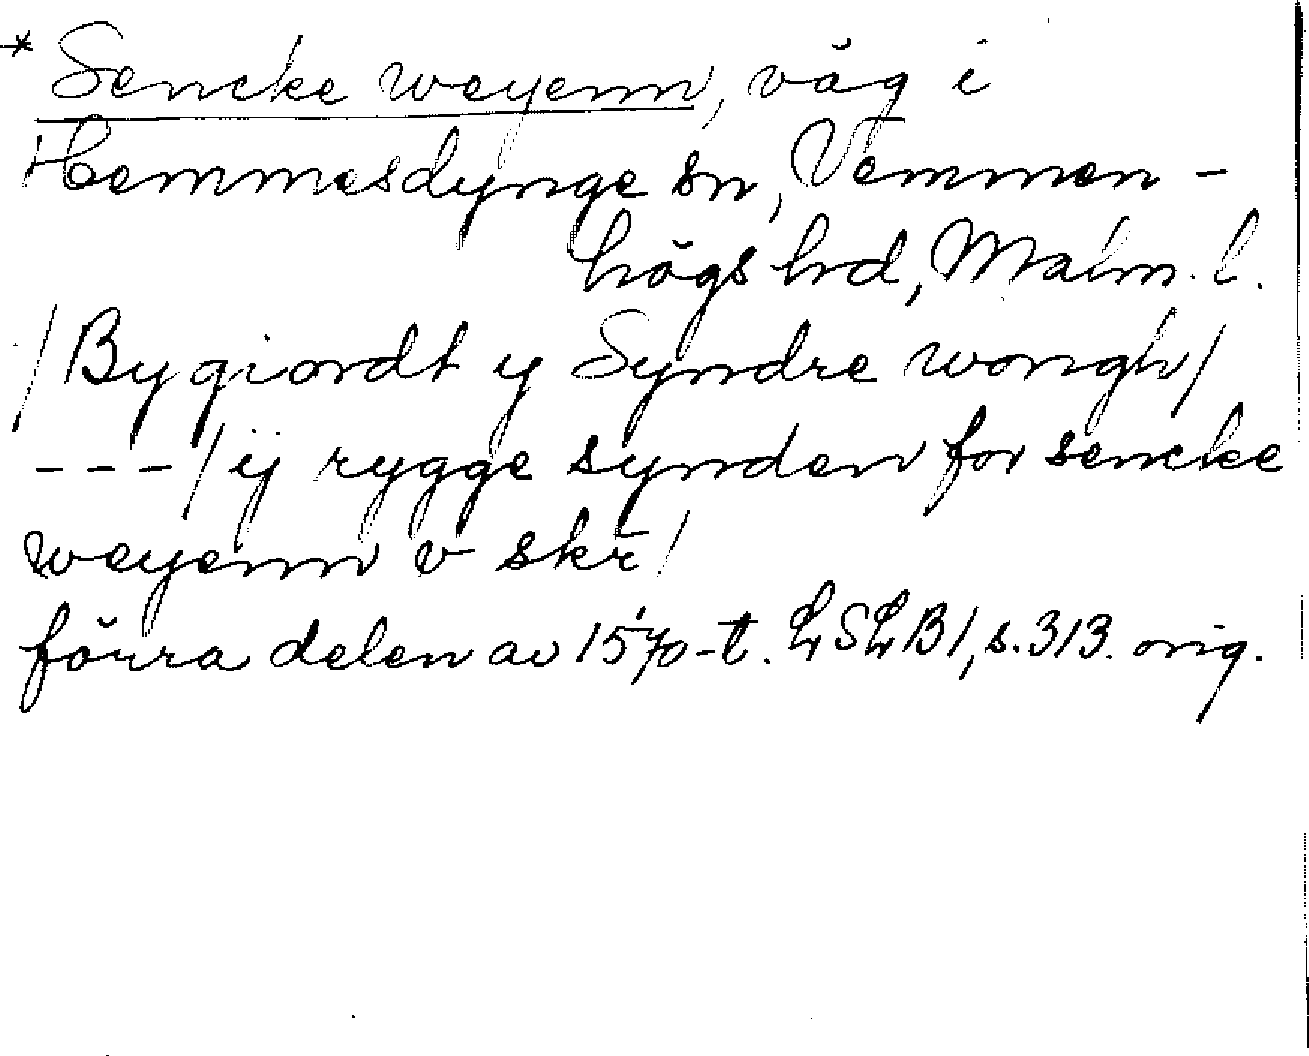 * Sencke weyenn, väg i
Hemmesdynge sn, Vemmen-
högs hrd, Malm. l.
/Bygiordt y Syndre wongh/
---/ ij rygge synden for sencke
weyenn v skr̄/
förra delen av 1570-t. LSLB1, s. 313. orig.